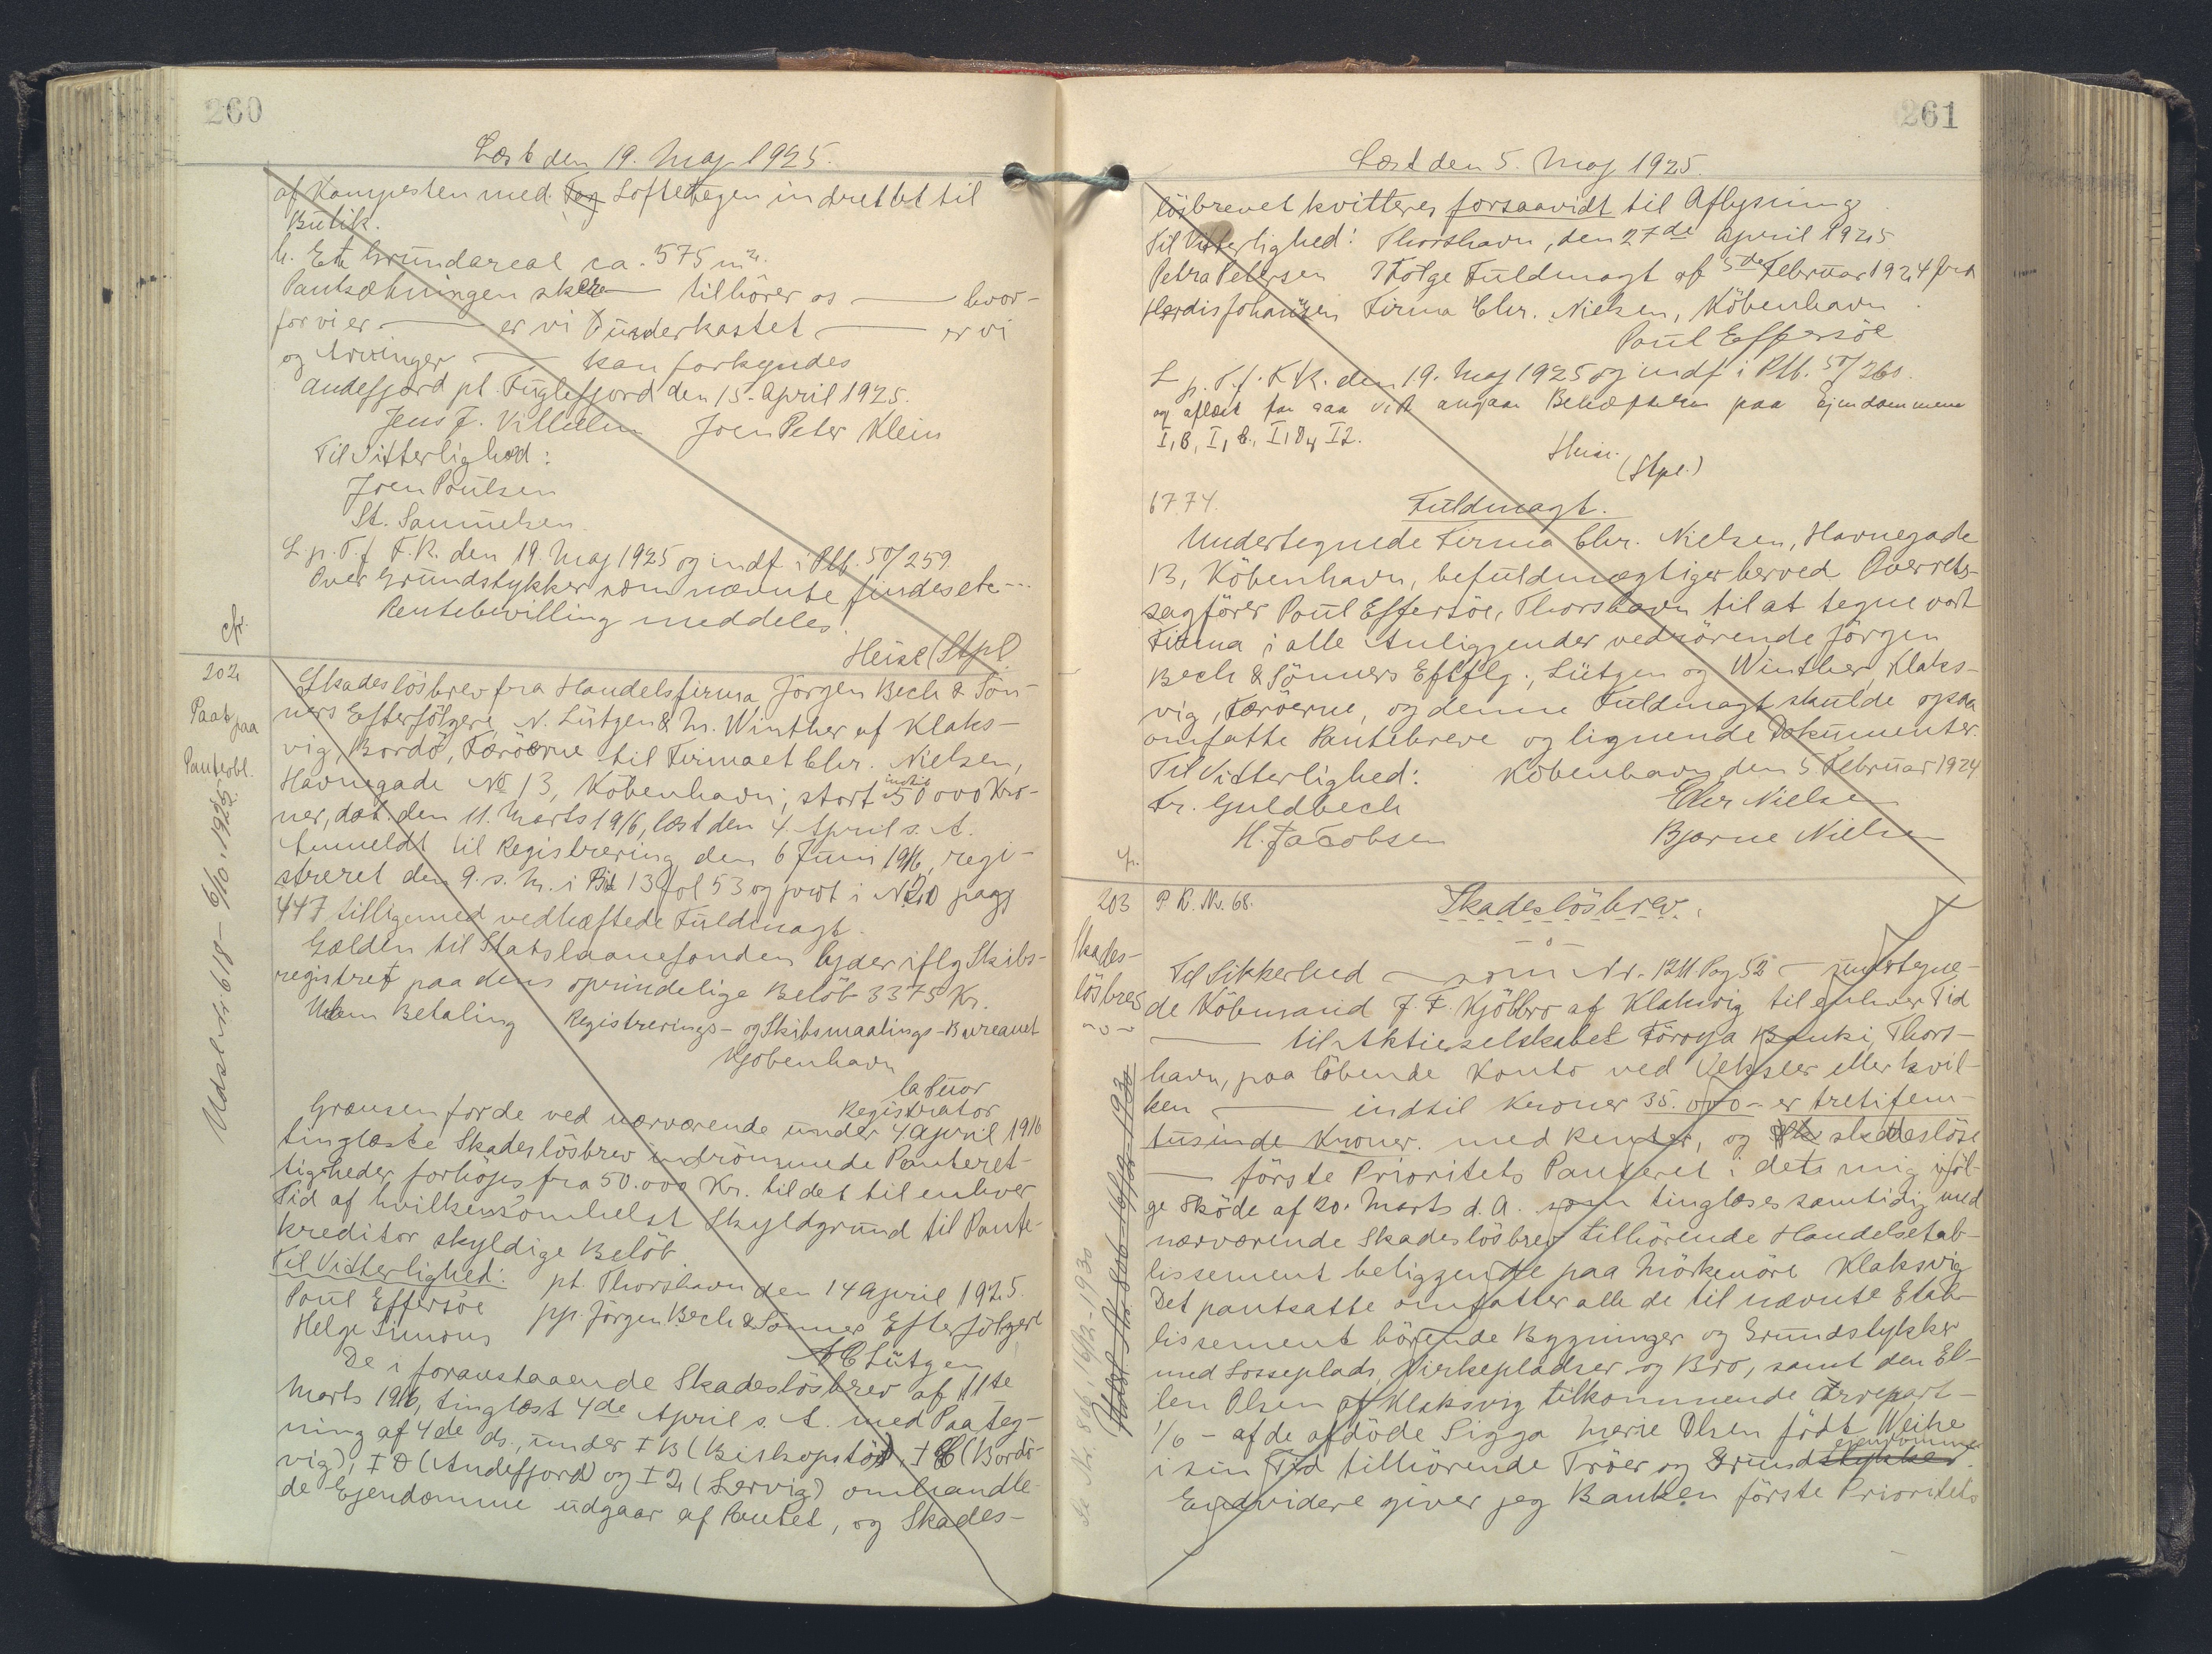 260
Læst den 19. Maj 1925.
af Kampesten med Tag Loftetagen indrettet til
Butik.
h. Et Grundareal ca. 575 m².
Pantsætningen sker — tilhører os — hvor-
for vi er — er vi underkastet — er vi
og Arvinger — kan forkyndes
Andefjord pt. Fuglefjord den 15. April 1925.
Jens J. Vilhelm Joen Peter Klein
Til Vitterlighed:
Joen Poulsen
St. Samuelsen.
L p. T. f F. R. den 19. Maj 1925 og indf. i Ptb. 50/259.
Over Grundstykker som nævnte findes etc ---
Rentebevilling meddeles.
Heise (Stpl.
cfr.
202
Paat. paa
Panteobl.
Udslettet 618 – 6/10. 1925.
Skadeslösbrev fra Handelsfirma Jörgen Bech & Sön-
ners Efterfölgere, N. Lützen & M. Winther af Klaks-
vig, Bordö, Færöerne til Firmaet Chr. Nielsen,
Havnegade № 13, Köbenhavn, stort indtil 50000 Kro-
ner, dat. den 11. Marts 1916, læst den 4. April s. A.
Anmeldt til Registrering den 6 Juni 1916, regi-
streret den 9. s. M. i Bd 13 fol 53 og prot i N20 pag
447 tilligemed vedhæftede Fuldmagt.
Gælden til Statslaanefonden lyder iflg Skibs-
registret paa dens oprindelige Belöb 3375 Kr.
Uden Betaling Registrerings- og Skibsmaalings-Bureauet
Kjøbenhavn
la Cour
Registrator
Grænsen for de ved nærværende under 4 April 1916
tinglæste Skadeslösbrev indrömmede Panteret-
tigheder, forhöjes fra 50.000 Kr. til det til enhver
Tid af hvilkensomhelst Skyldgrund til Pante-
kreditor skyldige Belöb.
Til Vitterlighed: pt. Thorshavn den 14 April 1925.
Poul Effersöe pp. Jörgen Bech & Sönner Efterfölgere
Helge Simons N C Lützen
De i foranstaaende Skadeslösbrev af 11te
Marts 1916, tinglæst 4de April s. A. med Paateg-
ning af 4de ds., under I B (Biskopstöd), I C (Bordö-
vig), I D (Andefjord) og I 2 (Lervig) omhandle-
de Ejendomme udgaar af Pantet, og Skades-
261
Læst den 5. Maj 1925.
lösbrevet kvitteres forsaavidt til Aflysning.
Til Vitterlighed: Thorshavn, den 27de April 1925
Petra Petersen Ifölge Fuldmagt af 5de Februar 1924 fra
Herdis Johansen Firma Chr. Nielsen, Köbenhavn.
Poul Effersöe
L p. T. f. F. R. den 19. Maj 1925 og indf i Ptb. 50/260.
og aflæst for saa vidt angaar Behæftelsen paa Ejendommene
I, B, I, C, I, D og I 2.
Heise.
(Stpl.)
6774. Fuldmagt.
Undertegnede Firma Chr. Nielsen, Havnegade
13, Köbenhavn, befuldmægtiger herved Overrets-
sagförer Poul Effersöe, Thorshavn til at tegne vort
Firma i alle Anliggender vedrörende Jörgen
Bech & Sönners Eftflg., Lützen og Winther, Klaks-
vig, Færöerne, og denne Fuldmagt skulde ogsaa
omfatte Pantebreve og lignende Dokumenter.
Til Vitterlighed: Köbenhavn den 5 Februar 1924
Fr. Guldbech Chr Nielsen
H. Jacobsen Bjarne Nielsen
cfr.
203
Skades-
lösbrev
P. R. Nr. 68. Skadeslösbrev.
Til Sikkerhed — som Nr. 1211. Pag 52 — undertegne-
de Köbmand J. F. Kjölbro af Klaksvig til enhver Tid
— til Aktieselskabet Föroya Banki, Thors-
havn, paa löbende Konto ved Veksler eller hvil-
ken — indtil Kroner 35.000 – er tretifem-
tusinde Kroner. med Renter, og skadeslöse
— förste Prioritets Panteret i dets mig iföl-
ge Sköde af 20. Marts d. A. som tinglæses samtidig med
nærværende Skadeslösbrev tilhörende Handelsetab-
lissement beliggende paa Mörkenöre Klaksvig
Det pantsatte omfatter alle de til nævnte Etab-
lissement hörende Bygninger og Grundstykker
med Losseplads, Virkepladser og Bro, samt den El-
len Olsen af Klaksvig tilkommende Arvepart –
1/6 – af de afdöde Sigga Marie Olsen födt Weihe
i sin Tid tilhörende Tröer og Grundstykker.
Endvidere giver jeg Banken förste Prioritets
Se Nr. 806, 16/12-1930
Udsl. Nr. 806 16/12 1930